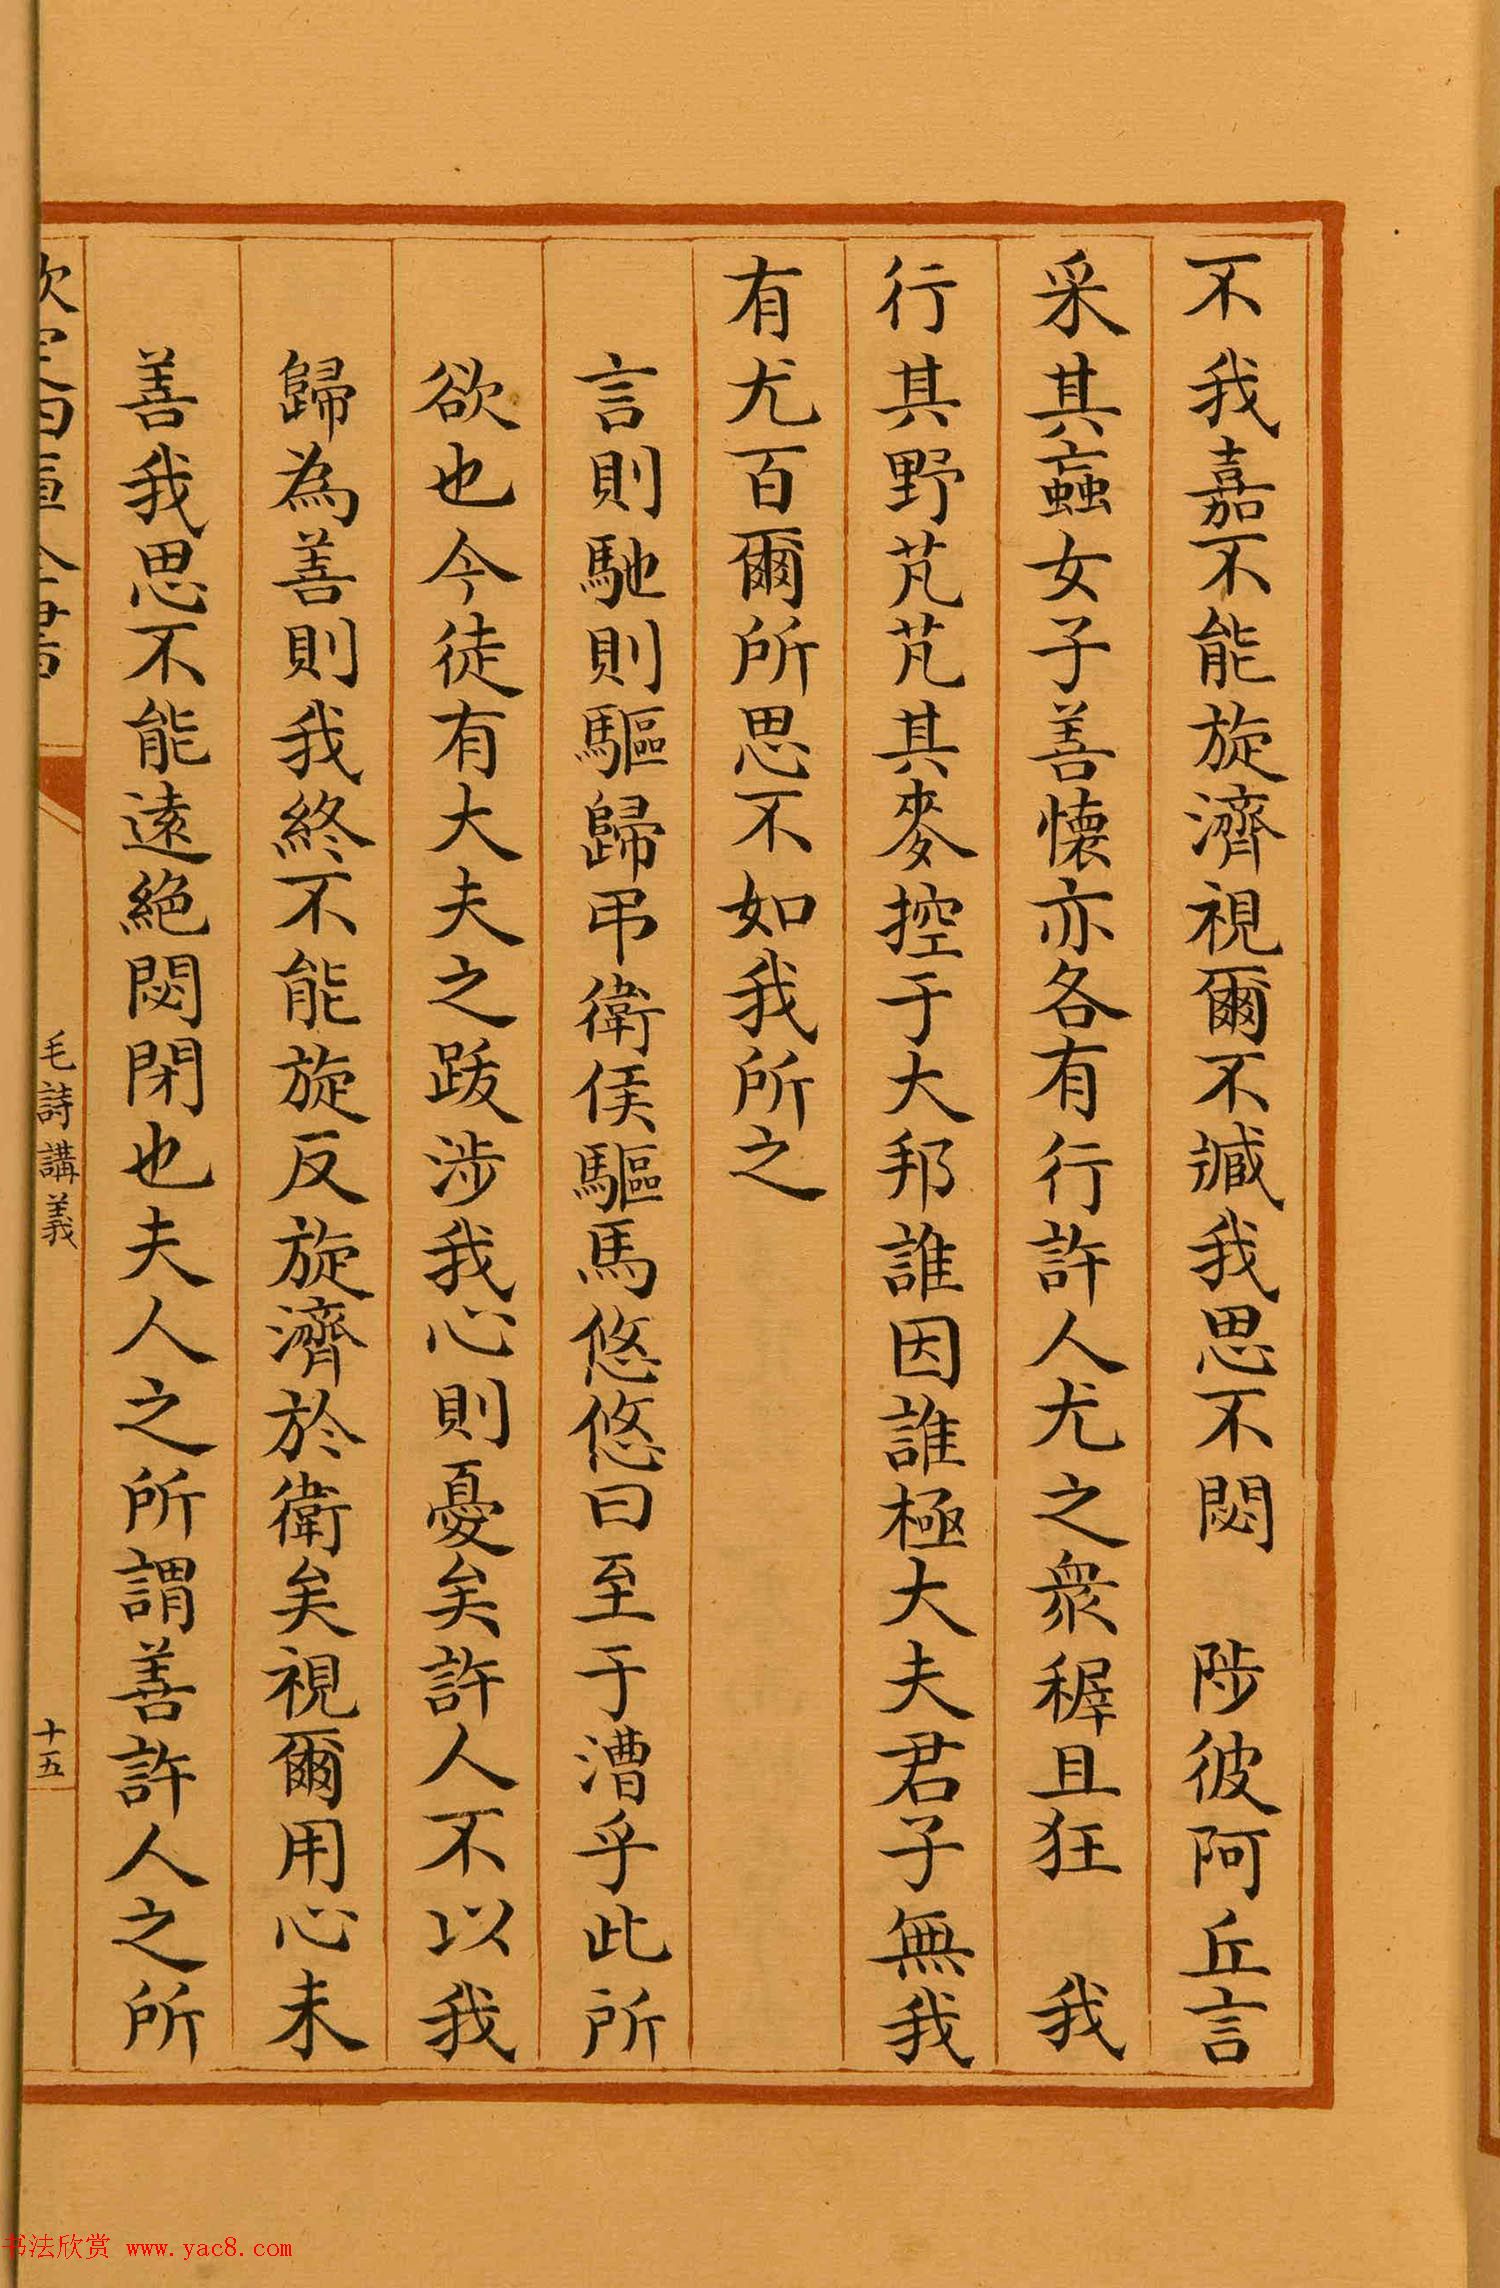 不我嘉不能旋濟視爾不臧我思不閟　陟彼阿丘言
采其蝱女子善懷亦各有行許人尤之衆穉且狂　我
行其野芃芃其麥控于大邦誰因誰極大夫君子無我
有尤百爾所思不如我所之
言則馳則驅歸弔衛侯驅馬悠悠曰至于漕乎此所
欲也今徒有大夫之跋涉我心則憂矣許人不以我
歸為善則我終不能旋反旋濟於衛矣視爾用心未
善我思不能遠絶閟閉也夫人之所謂善許人之所
欽定四庫全書
毛詩講義
十五
书法欣赏 www.yac8.com